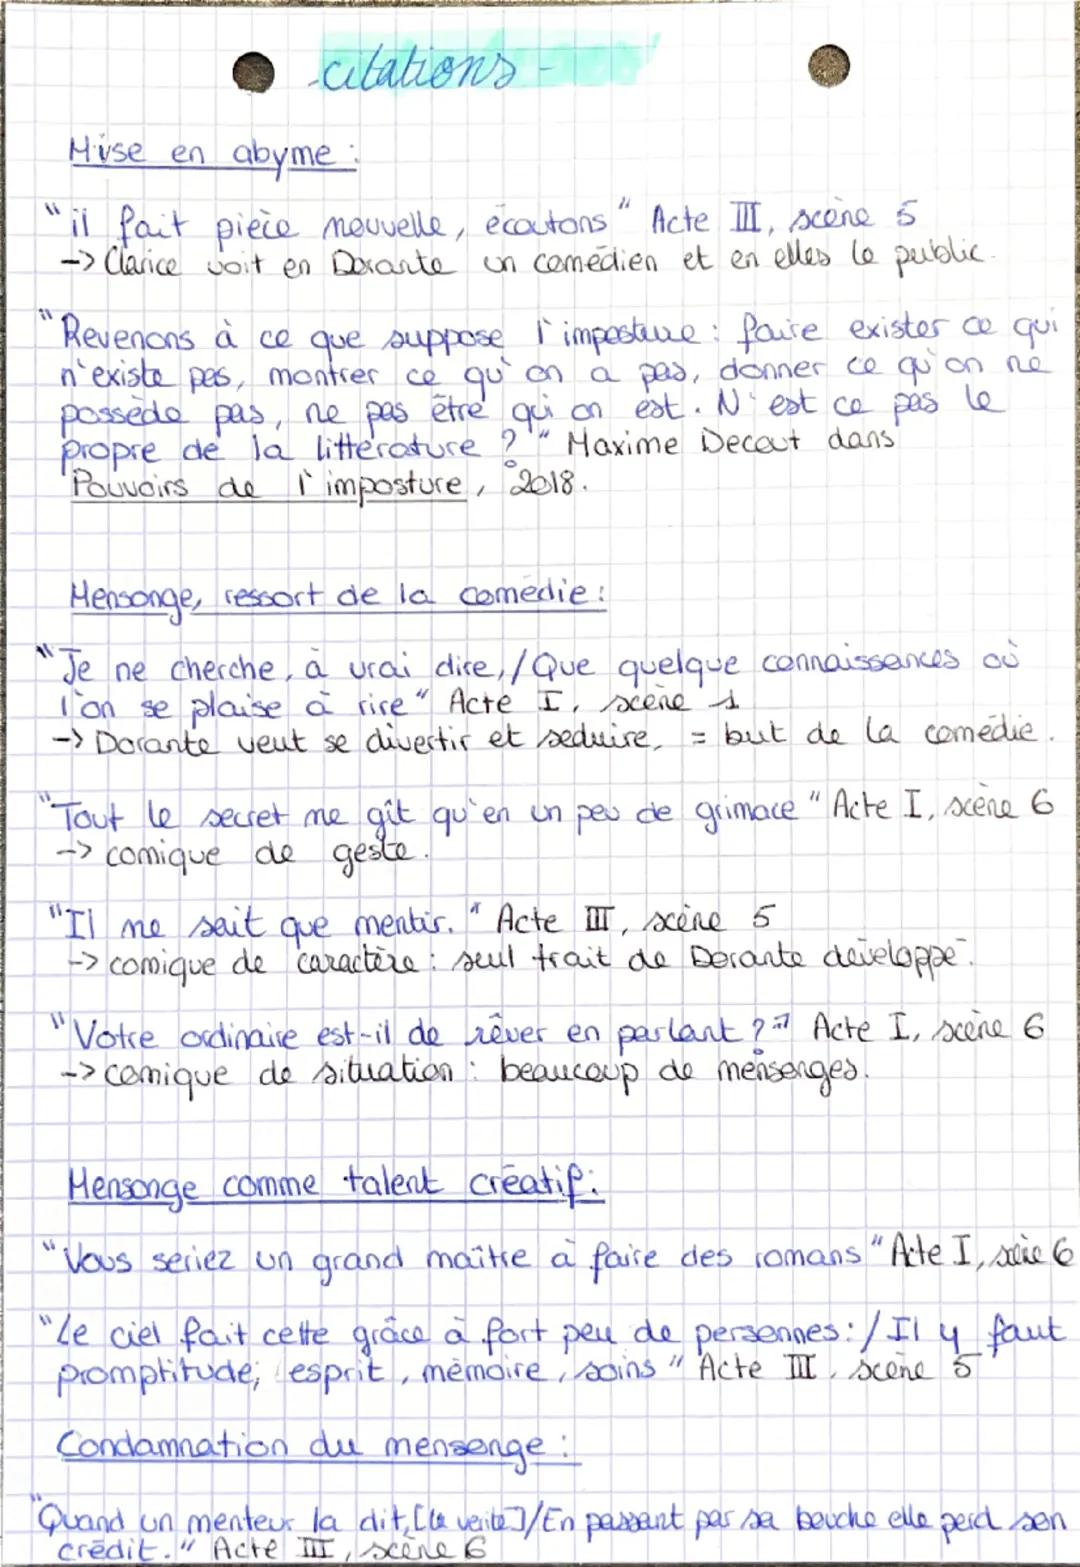 - citations -
Mise en abyme :
"il fait pièce nouvelle, écoutons" Acte III, scène 5
-> Clarice voit en Dorante un comédien et en elles le public.
"Revenons à ce que suppose l'imposture : faire exister ce qui
n'existe pas, montrer ce qu'on a pas, donner ce qu'on ne
possède pas, ne pas être qui on est. N'est ce pas le
propre de la littérature ?" Maxime Decout dans
Pouvoirs de l'imposture, 2018.
Mensonge, ressort de la comédie :
"Je ne cherche, à vrai dire,/Que quelque connaissances où
l'on se plaise à rire" Acte I, scène 1
-> Dorante veut se divertir et séduire, = but de la comédie.
"Tout le secret ne gît qu'en un peu de grimace" Acte I, scène 6
-> comique de geste.
"Il ne sait que mentir." Acte III, scène 5
-> comique de caractère : seul trait de Dorante développé.
"Votre ordinaire est-il de rêver en parlant ?" Acte I, scène 6
-> comique de situation : beaucoup de mensonges.
Mensonge comme talent créatif :
"Vous seriez un grand maître à faire des romans" Acte I, scène 6
"Le ciel fait cette grâce à fort peu de personnes : / Il y faut
promptitude, esprit, mémoire, soins" Acte III, scène 5
Condamnation du mensonge :
"Quand un menteur la dit, [la vérité]/En passant par sa bouche elle perd son
crédit." Acte III, scène 6